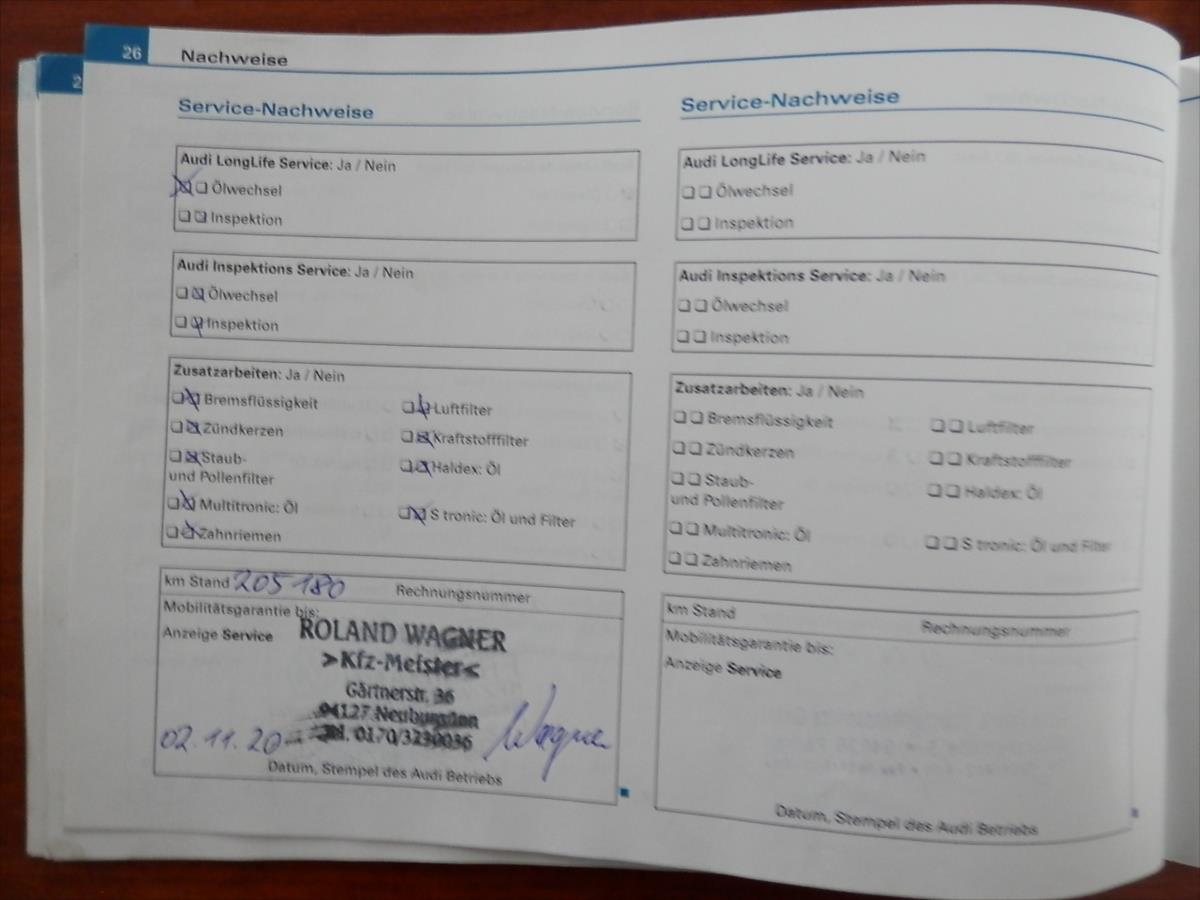 26
Nachweise
Service-Nachweise
Audi LongLife Service: Ja / Nein
Ölwechsel
Inspektion
Audi Inspektions Service: Ja / Nein
Ölwechsel
Inspektion
Zusatzarbeiten: Ja / Nein
Bremsflüssigkeit
Luftfilter
Zündkerzen
Kraftstofffilter
Staub-
und Pollenfilter
Haldex: Öl
Multitronic: Öl
S tronic: Öl und Filter
Zahnriemen
km Stand 205180
Rechnungsnummer
Mobilitätsgarantie bis:
Anzeige Service
ROLAND WAGNER
>Kfz-Meister<
Gärtnerstr. 36
94127 Neuburg/Inn
Tel. 0170/3230036
02.11.20
Wagner
Datum, Stempel des Audi Betriebs
Service-Nachweise
Audi LongLife Service: Ja / Nein
Ölwechsel
Inspektion
Audi Inspektions Service: Ja / Nein
Ölwechsel
Inspektion
Zusatzarbeiten: Ja / Nein
Bremsflüssigkeit
Luftfilter
Zündkerzen
Kraftstofffilter
Staub-
und Pollenfilter
Haldex: Öl
Multitronic: Öl
S tronic: Öl und Filter
Zahnriemen
km Stand
Rechnungsnummer
Mobilitätsgarantie bis:
Anzeige Service
Datum, Stempel des Audi Betriebs